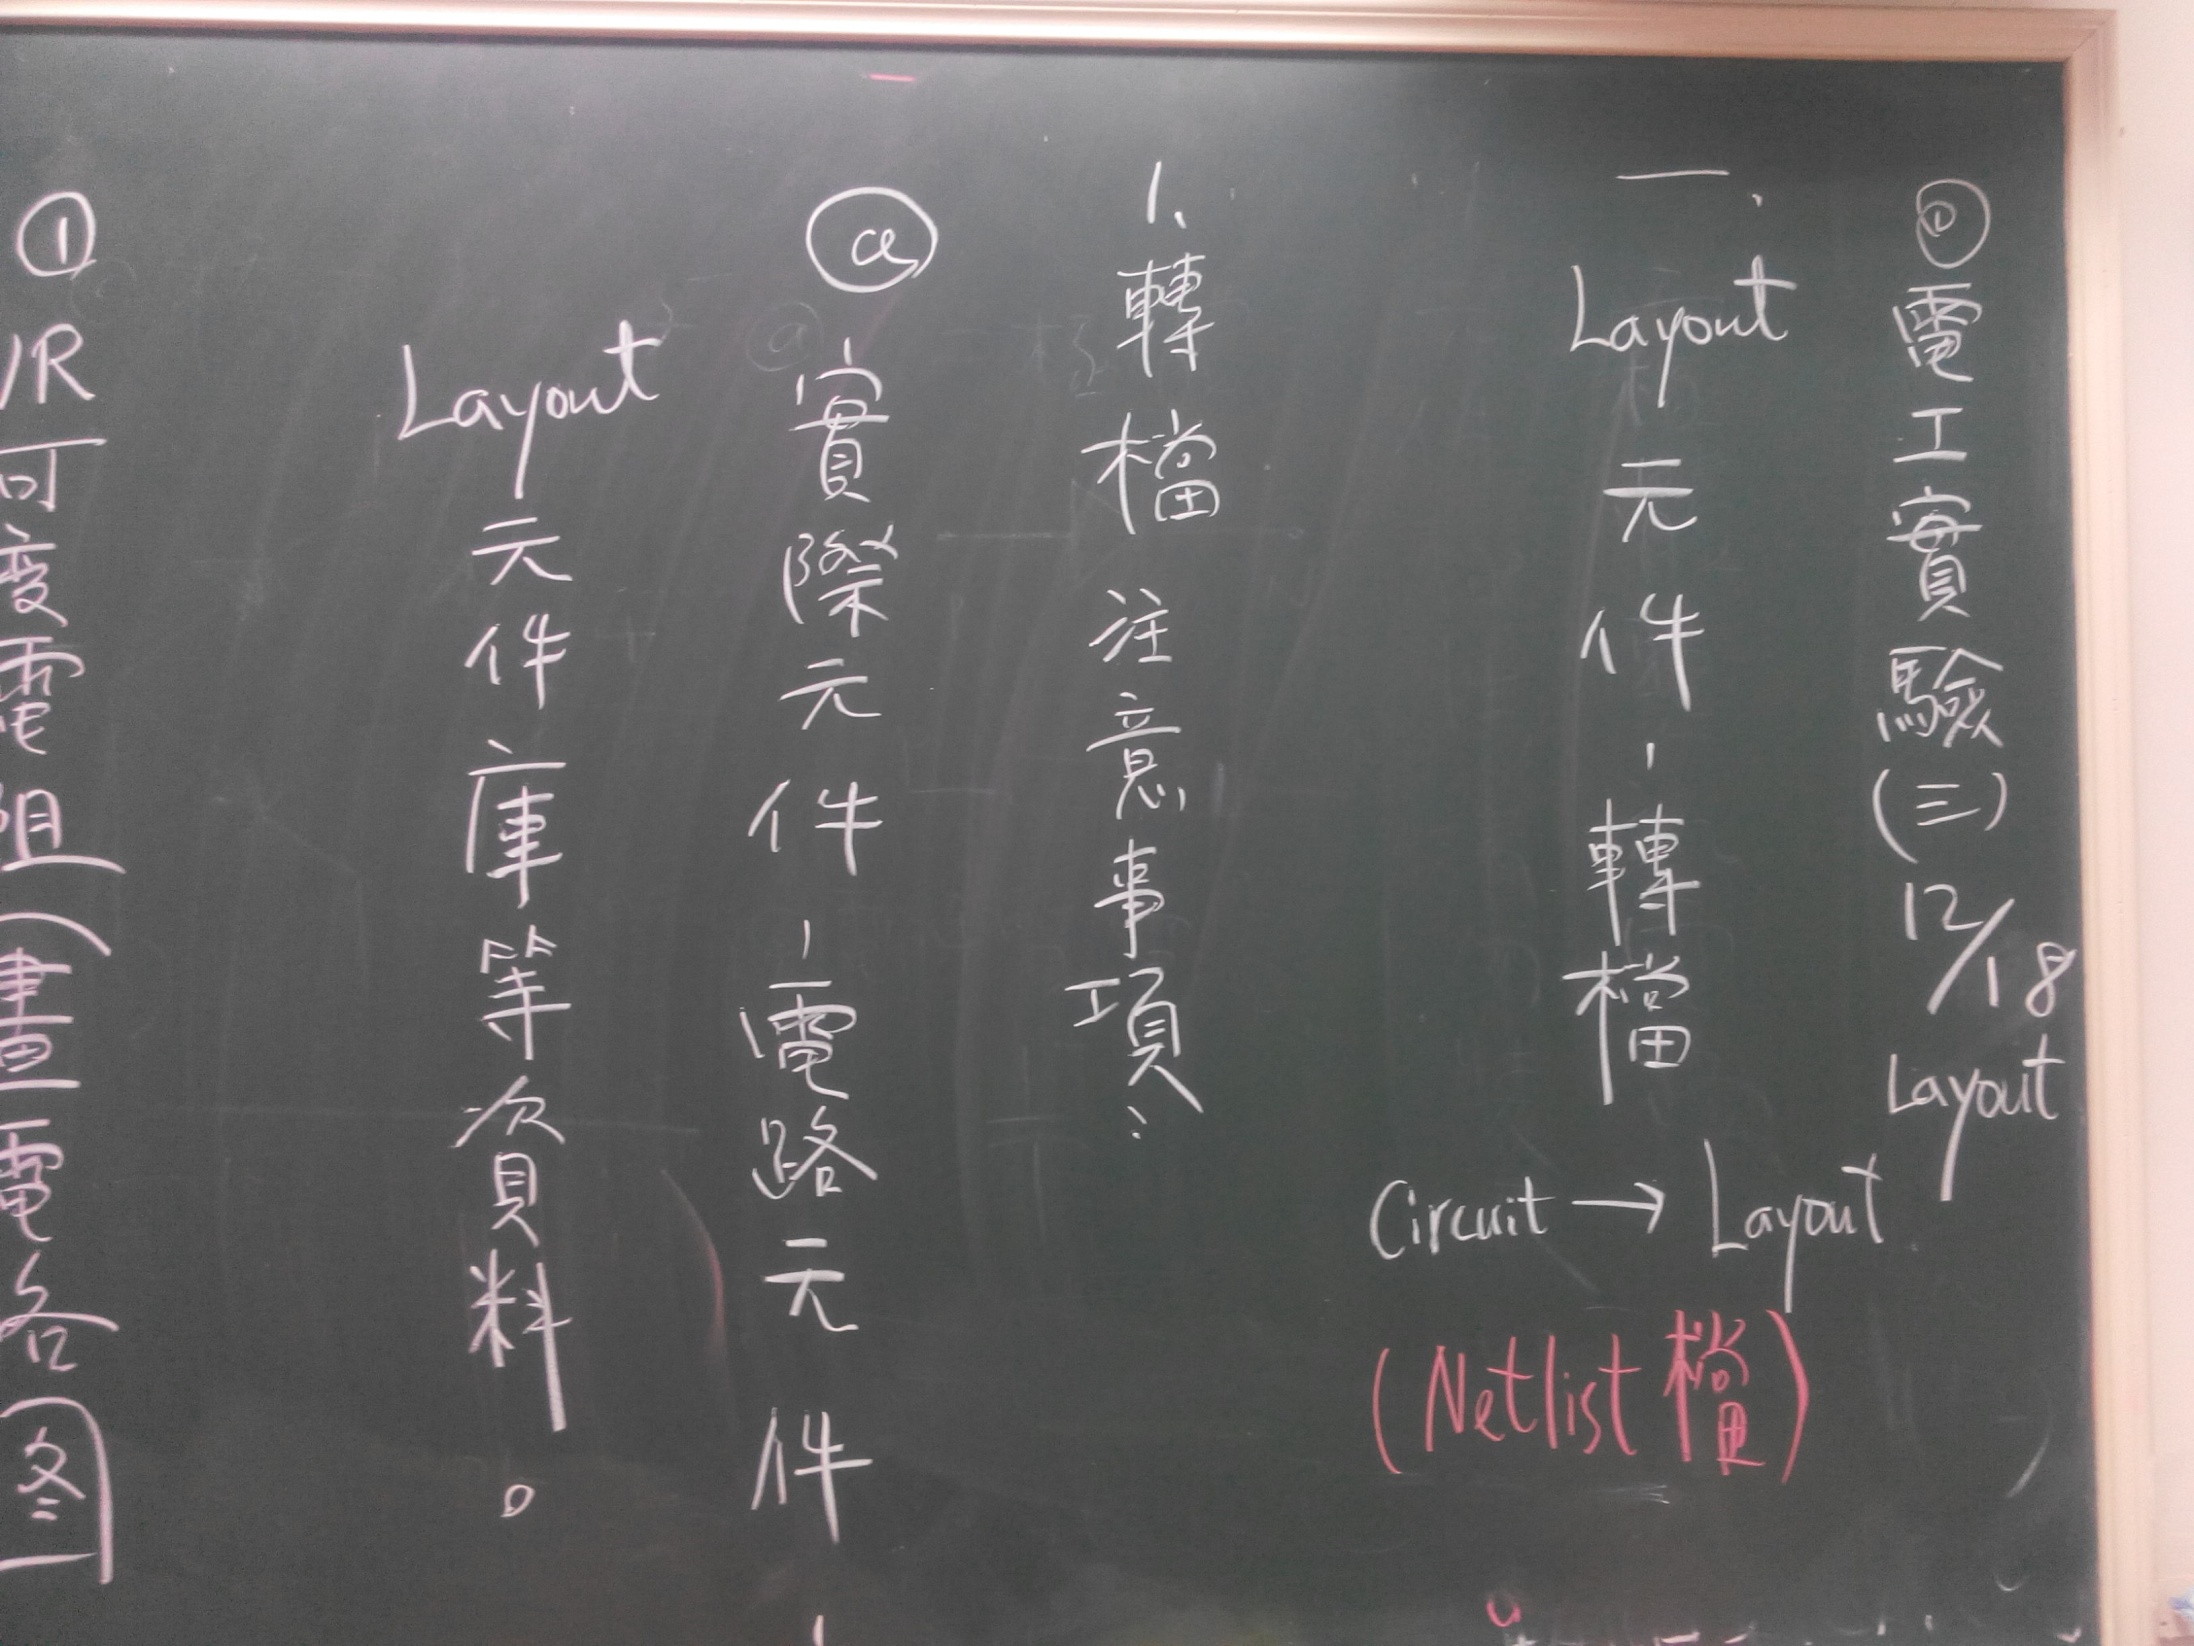 ①電工實驗(三)12/18 Layout
一. Layout元件、轉檔
Circuit → Layout
(Netlist檔)
1、轉檔 注意事項:
ⓐ實際元件、電路元件、
Layout元件庫等資料。
①VR可变電阻(畫電路图